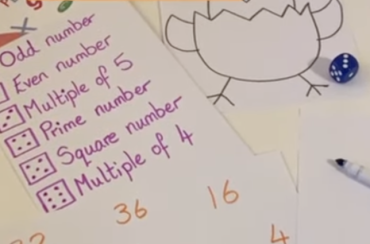 Odd number
Even number
Multiple of 5
Prime number
Square number
Multiple of 4
36
16
4